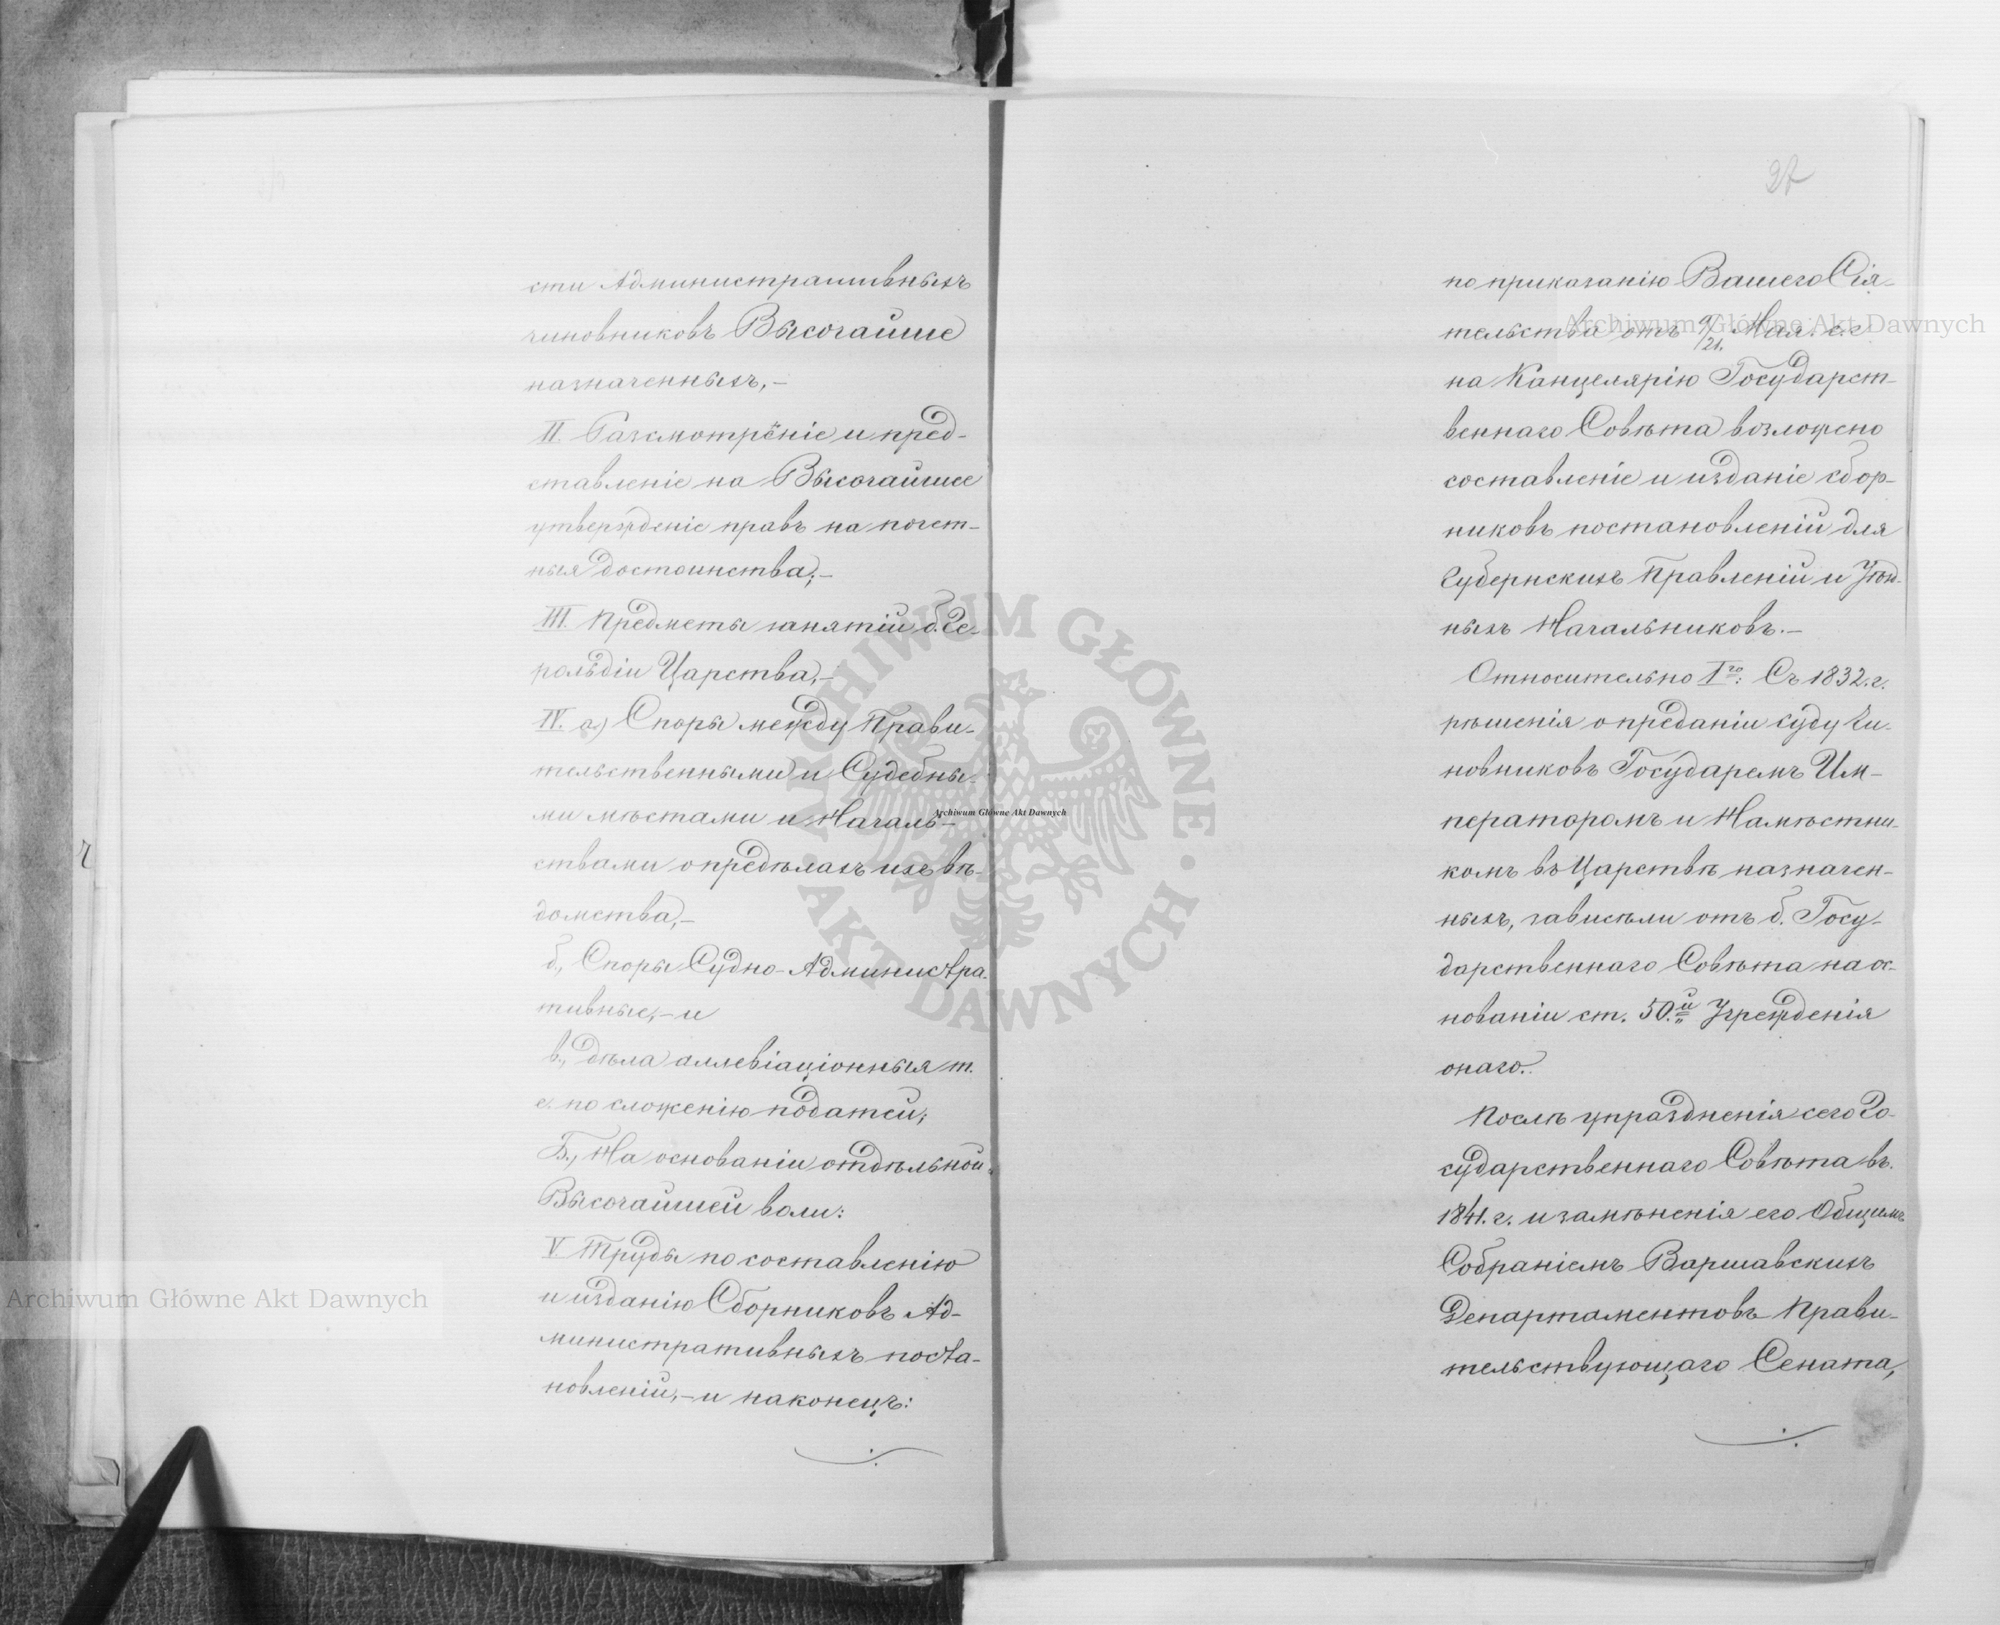 сти Административныхъ
чиновниковъ Высочайше
назначенныхъ,—
II. Разсмотрѣніе и пред-
ставленіе на Высочайшее
утвержденіе правъ на почет-
ныя достоинства;—
III. Предметы занятій б. Ге-
рольдіи Царства;—
IV. а.) Споры между Прави-
тельственными и Судебны-
ми мѣстами и Началь-
ствами о предѣлахъ ихъ вѣ-
домства,—
б., Споры Судно-Администра-
тивные,— и
в., дѣла аллевіаціонныя т.
е. по сложенію податей;
Б., На основаніи отдѣльной
Высочайшей воли:
V. Труды по составленію
и изданію Сборниковъ Ад-
министративныхъ поста-
новленій,— и наконецъ:
27
по приказанію Вашего Сія-
тельства отъ 9/21. Мая. с. г.
на Канцелярію Государст-
веннаго Совѣта возложено
составленіе и изданіе сбор-
никовъ постановленій для
Губернскихъ Правленій и Уѣзд-
ныхъ Начальниковъ.—
Относительно I го: Съ 1832. г.
рѣшенія о преданіи суду Чи-
новниковъ Государемъ Им-
ператоромъ и Намѣстни-
комъ въ Царствѣ назначен-
ныхъ, зависѣли отъ б. Госу-
дарственнаго Совѣта на ос-
нованіи ст. 50.й Учрежденія
онаго.
Послѣ упраздненія сего Го-
сударственнаго Совѣта въ
1841. г. и замѣненія его Общимъ
Собраніемъ Варшавскихъ
Департаментовъ Прави-
тельствующаго Сената,
Archiwum Główne Akt Dawnych
Archiwum Główne Akt Dawnych
Archiwum Główne Akt Dawnych
ARCHIWUM GŁÓWNE · AKT DAWNYCH ·